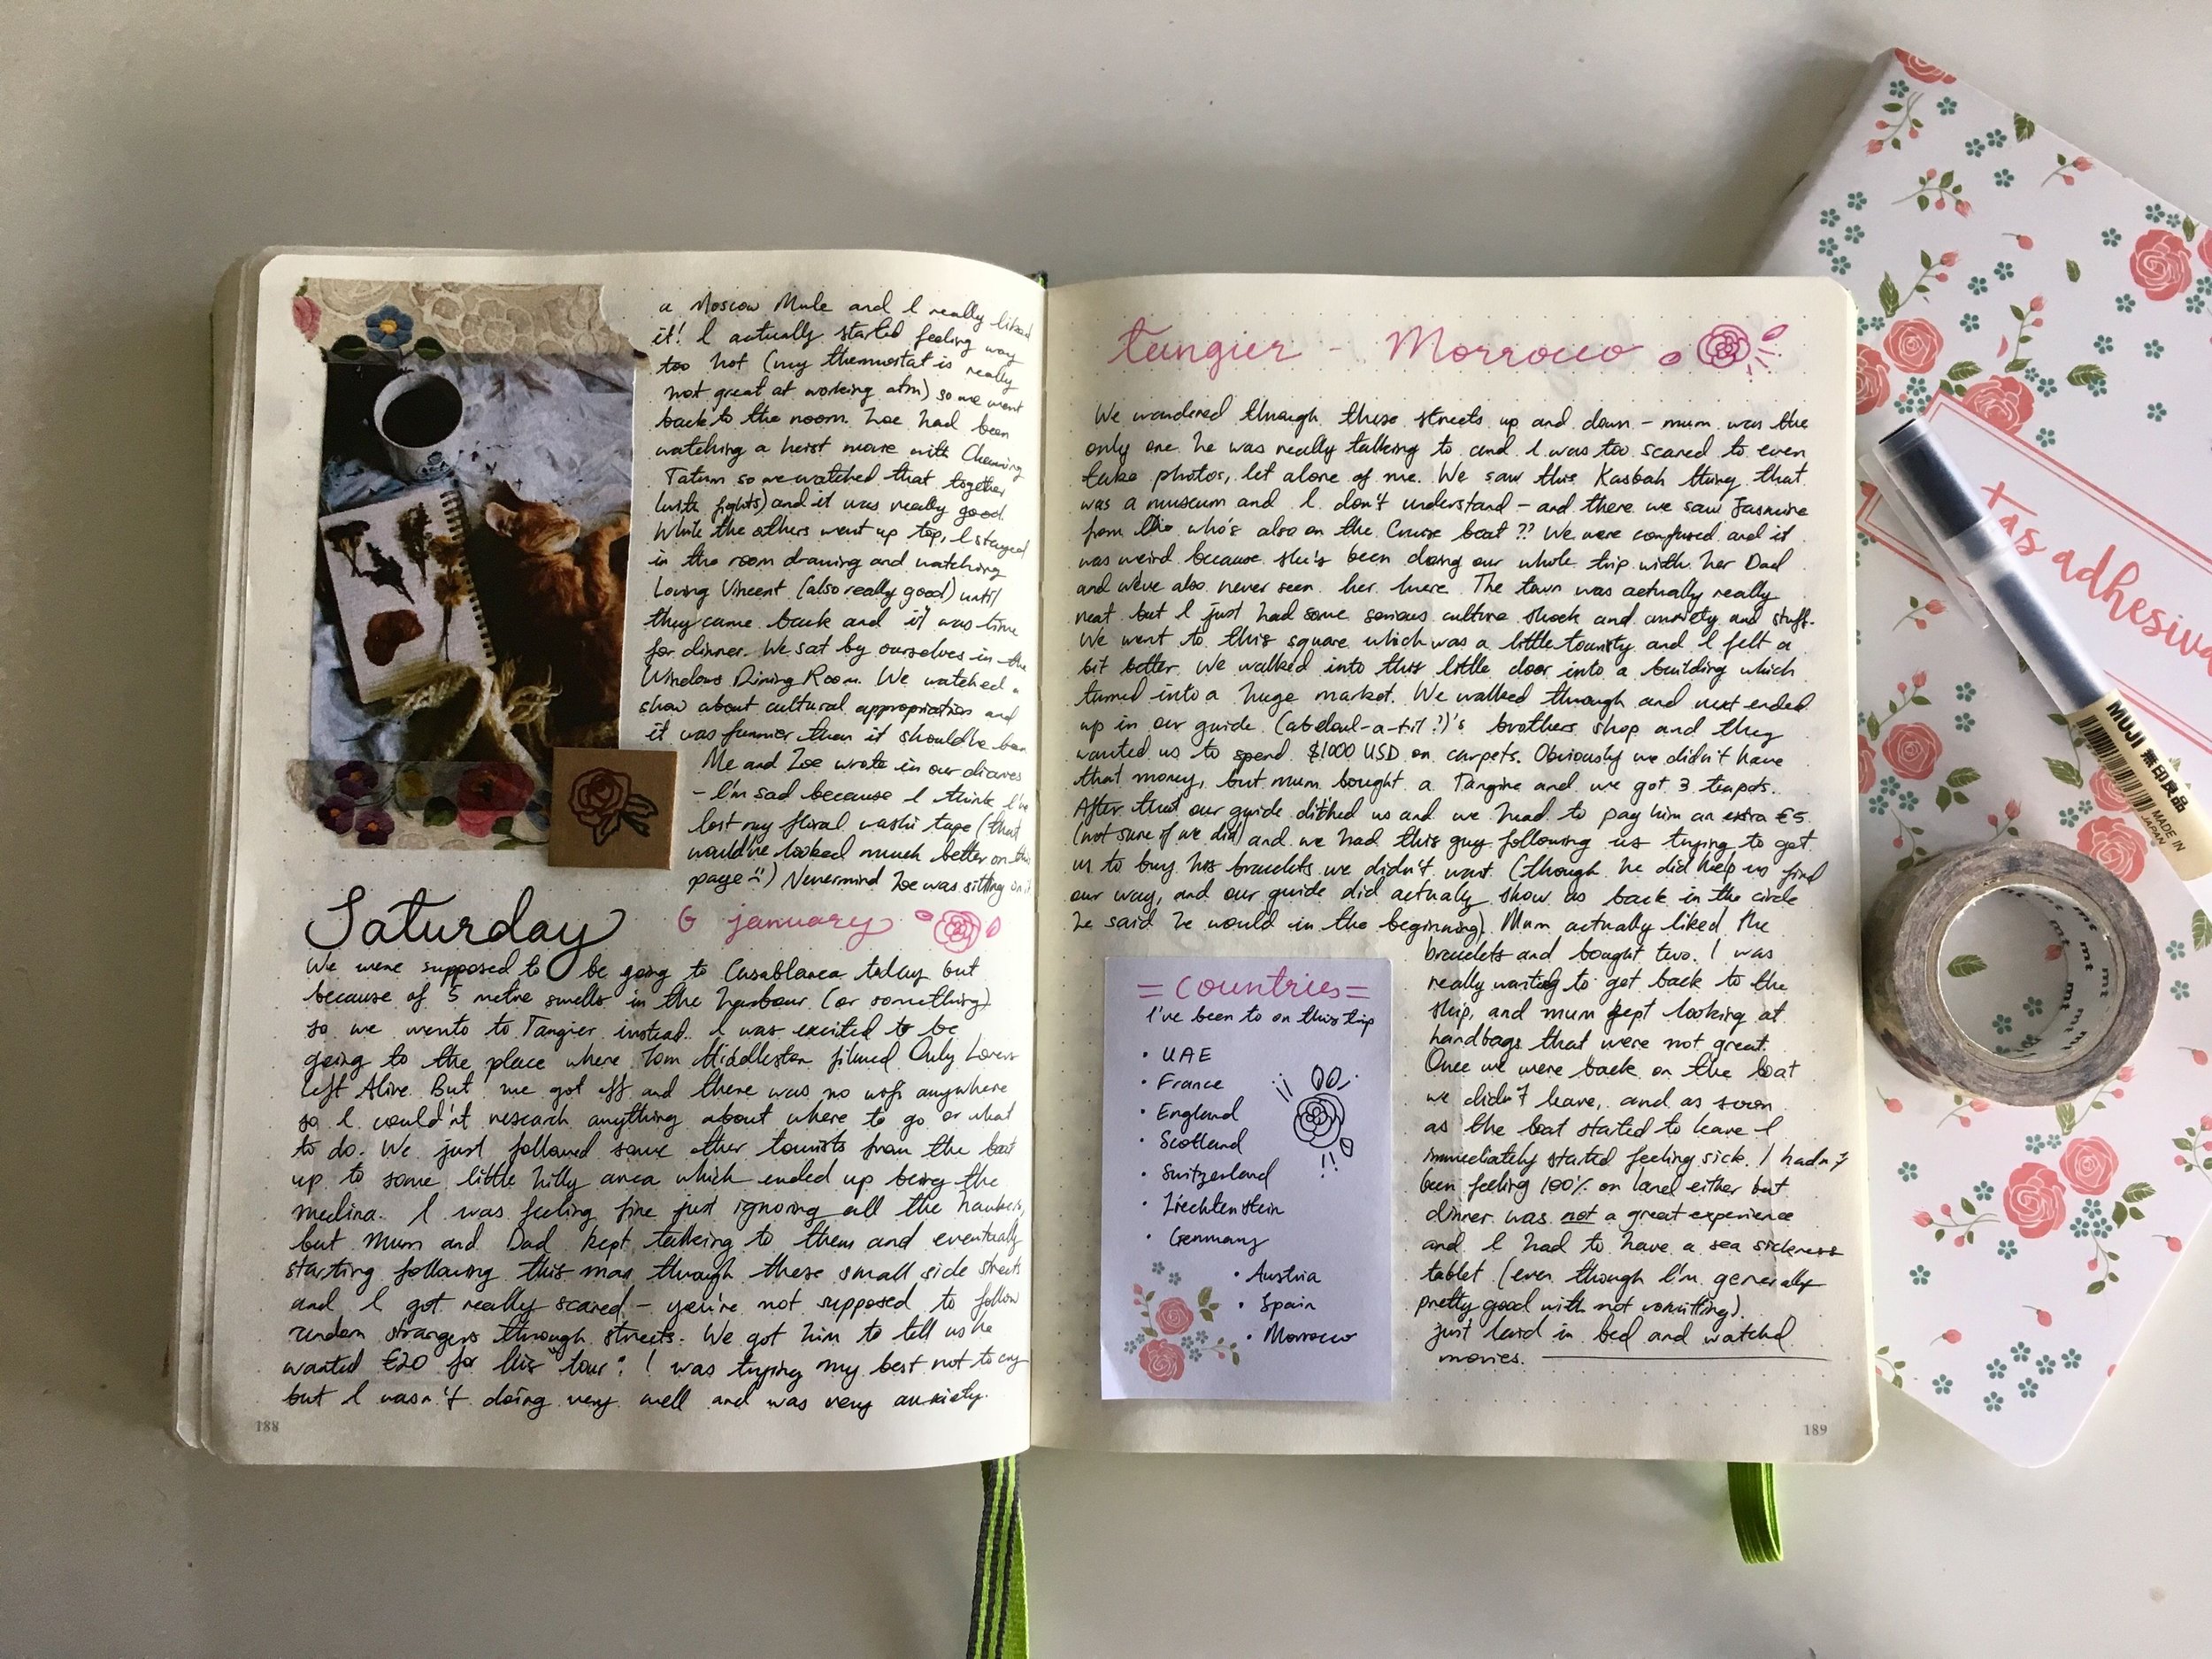 a Moscow Mule and I really liked
it! I actually started feeling way
too hot (my thermostat is really
not great at working atm) so we went
back to the room. Zoe had been
watching a heist movie with Channing
Tatum so we watched that together
(with fights) and it was really good.
While the others went up top, I stayed
in the room drawing and watching
Loving Vincent (also really good) until
they came back and it was time
for dinner. We sat by ourselves in the
Windows Dining Room. We watched a
show about cultural appropriation and
it was funnier than it should've been
Me and Zoe wrote in our diaries
- I'm sad because I think I've
lost my floral washi tape (that
would've looked much better on this
page :() Nevermind Zoe was sitting on it
Saturday 6 january
We were supposed to be going to Casablanca today but
because of 5 metre swells in the harbour (or something)
so we wento to Tangier instead. I was excited to be
going to the place where Tom Hiddleston filmed Only Lovers
Left Alive. But we got off and there was no wifi anywhere
so I could'nt research anything about where to go or what
to do. We just followed some other tourists from the boat
up to some little hilly area which ended up being the
medina. I was feeling fine just ignoring all the hawkers,
but Mum and Dad kept talking to them and eventually
starting following this man through these small side streets
and I got really scared - you're not supposed to follow
random strangers through streets. We got him to tell us he
wanted €20 for his "tour". I was trying my best not to cry
but I wasn't doing very well and was very anxiety.
188
tangier - Morrocco
We wandered through these streets up and down - mum was the
only one he was really talking to and I was too scared to even
take photos, let alone of me. We saw this Kasbah thing that
was a museum and I don't understand - and there we saw Jasmine
from who's also on the Cruise boat ?? We were confused and it
was weird because she's been doing our whole trip with her Dad
and we've also never seen her there. The town was actually really
neat but I just had some serious culture shock and anxiety and stuff.
We went to this square which was a little touristy and I felt a
bit better. We walked into this little door into a building which
turned into a huge market. We walked through and next ended
up in our guide (abdoul-a-til?)'s brothers shop and they
wanted us to spend $1000 USD on carpets. Obviously we didn't have
that money, but mum bought a Tangine and we got 3 teapots.
After that our guide ditched us and we had to pay him an extra €5
(not sure if we did) and we had this guy following us trying to get
us to buy his bracelets we didn't want (though he did help us find
our way, and our guide did actually show us back in the circle
he said he would in the beginning). Mum actually liked the
bracelets and bought two. I was
really wanting to get back to the
ship, and mum kept looking at
handbags that were not great.
Once we were back on the boat
we didn't leave, and as soon
as the boat started to leave I
immediately started feeling sick. I hadn't
been feeling 100% on land either but
dinner was not a great experience
and I had to have a sea sickness
tablet (even though I'm generally
pretty good with not vomitting).
just laid in bed and watched
movies.
= countries =
I've been to on this trip
• UAE
• France
• England
• Scotland
• Switzerland
• Liechtenstein
• Germany
• Austria
• Spain
• Morrocco
189
tas adhesiva
MUJI 無印良品
MADE IN
JAPAN
mt mt mt mt mt